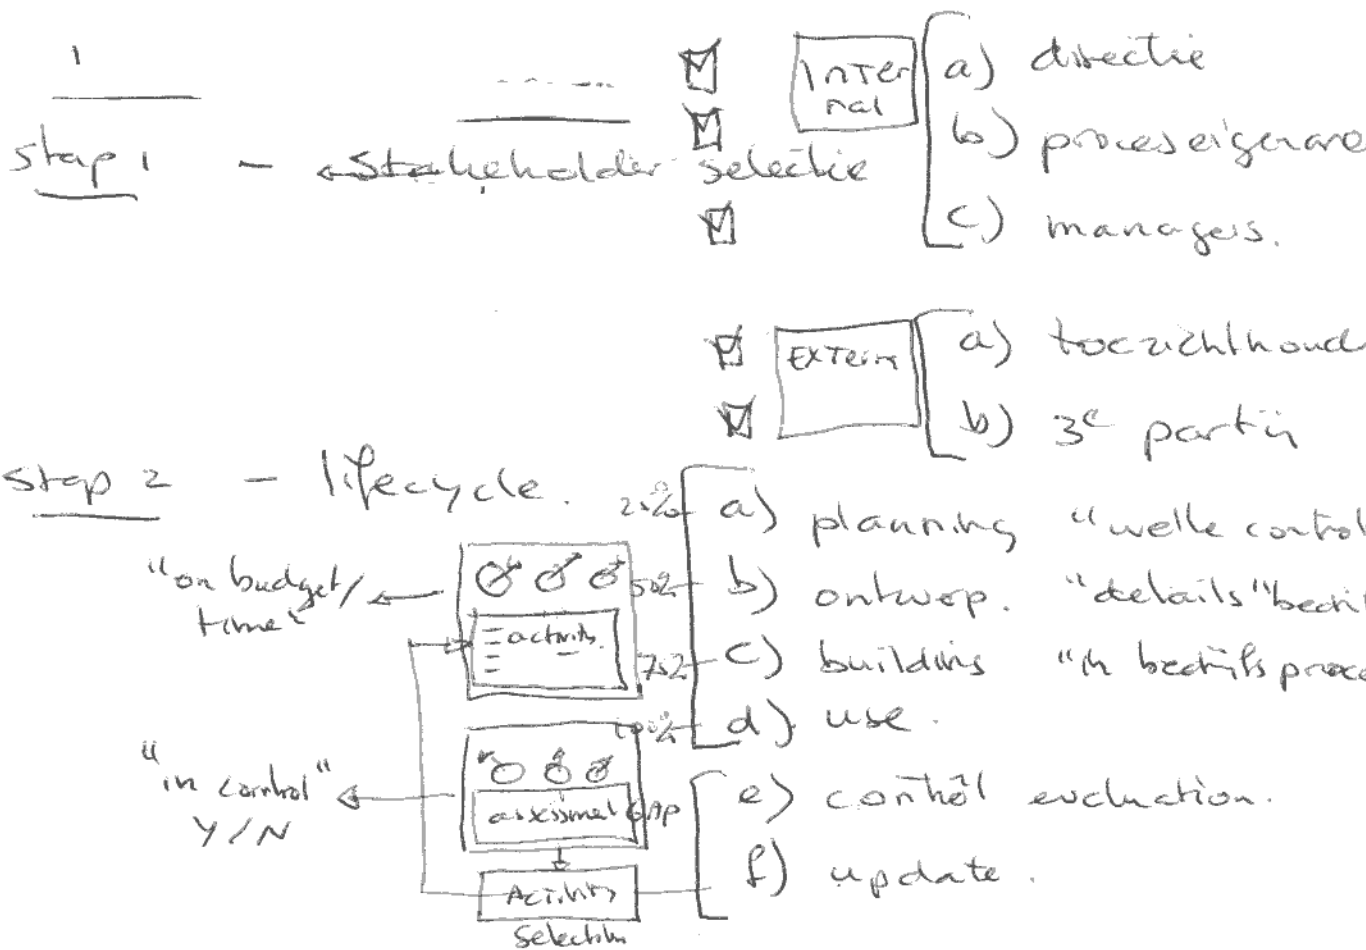 1
stap 1 - Stakeholder selectie
Inter
nal
a) directie
b) proceseigenare
c) managers.
Extern
a) toezichthoud
b) 3e partij
stap 2 - lifecycle.
25% a) planning "welke control
50% b) ontwerp. "details" bedrij
75% c) building "in bedrijfs proce
100% d) use.
"on budget/
time"
activity
"in control"
Y/N
assessment GAP
e) control evaluation.
f) update.
Activity
Selection